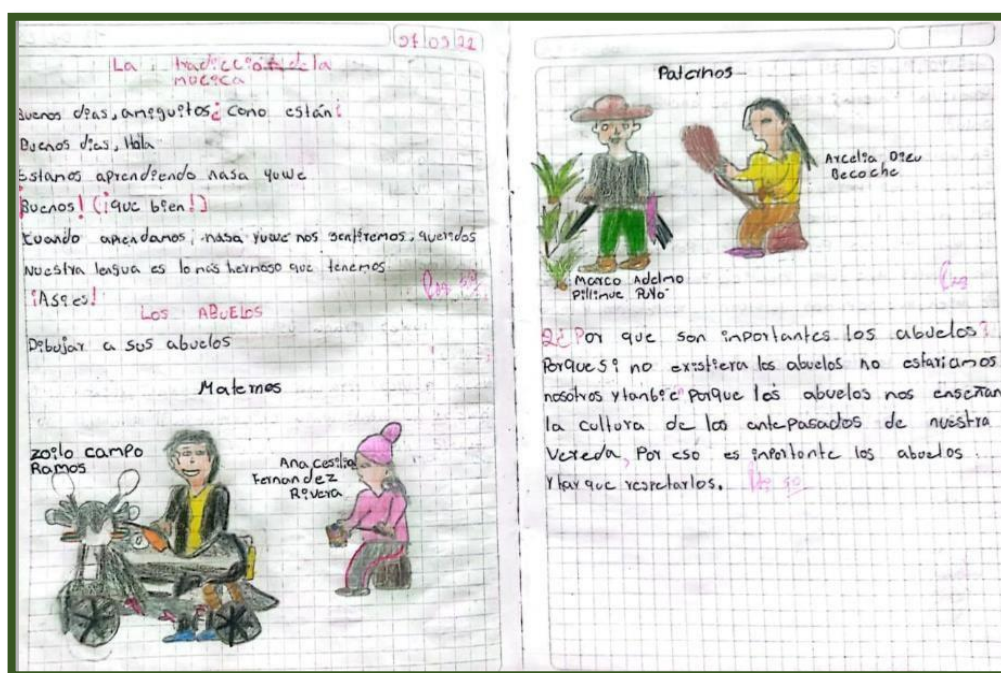 07 09 22
La tradicción de la
mucica
Buenos dias, amiguitos ¿como están?
Buenos dias, Hola
Estamos aprendiendo nasa yuwe
Buenos! (¡que bien!)
Cuando aprendamos, nasa yuwe nos sentiremos, queridos
Nuestra lengua es lo más hermoso que tenemos
¡Asi es!
LOS ABUELOS
Dibujar a sus abuelos
Maternos
zoilo campo
Ramos
Ana cesilia
Fernandez
Rivera
Paternos
Arcelia
Becoche
Marco Adelmo
Pillimue
2¿Por que son inportantes los abuelos?
Porque si no existiera los abuelos no estariamos
nosotros y tanbie porque los abuelos nos enseñan
la cultura de los antepasados de nuestra
Vereda, Por eso es inportante los abuelos
Y hay que respetarlos.